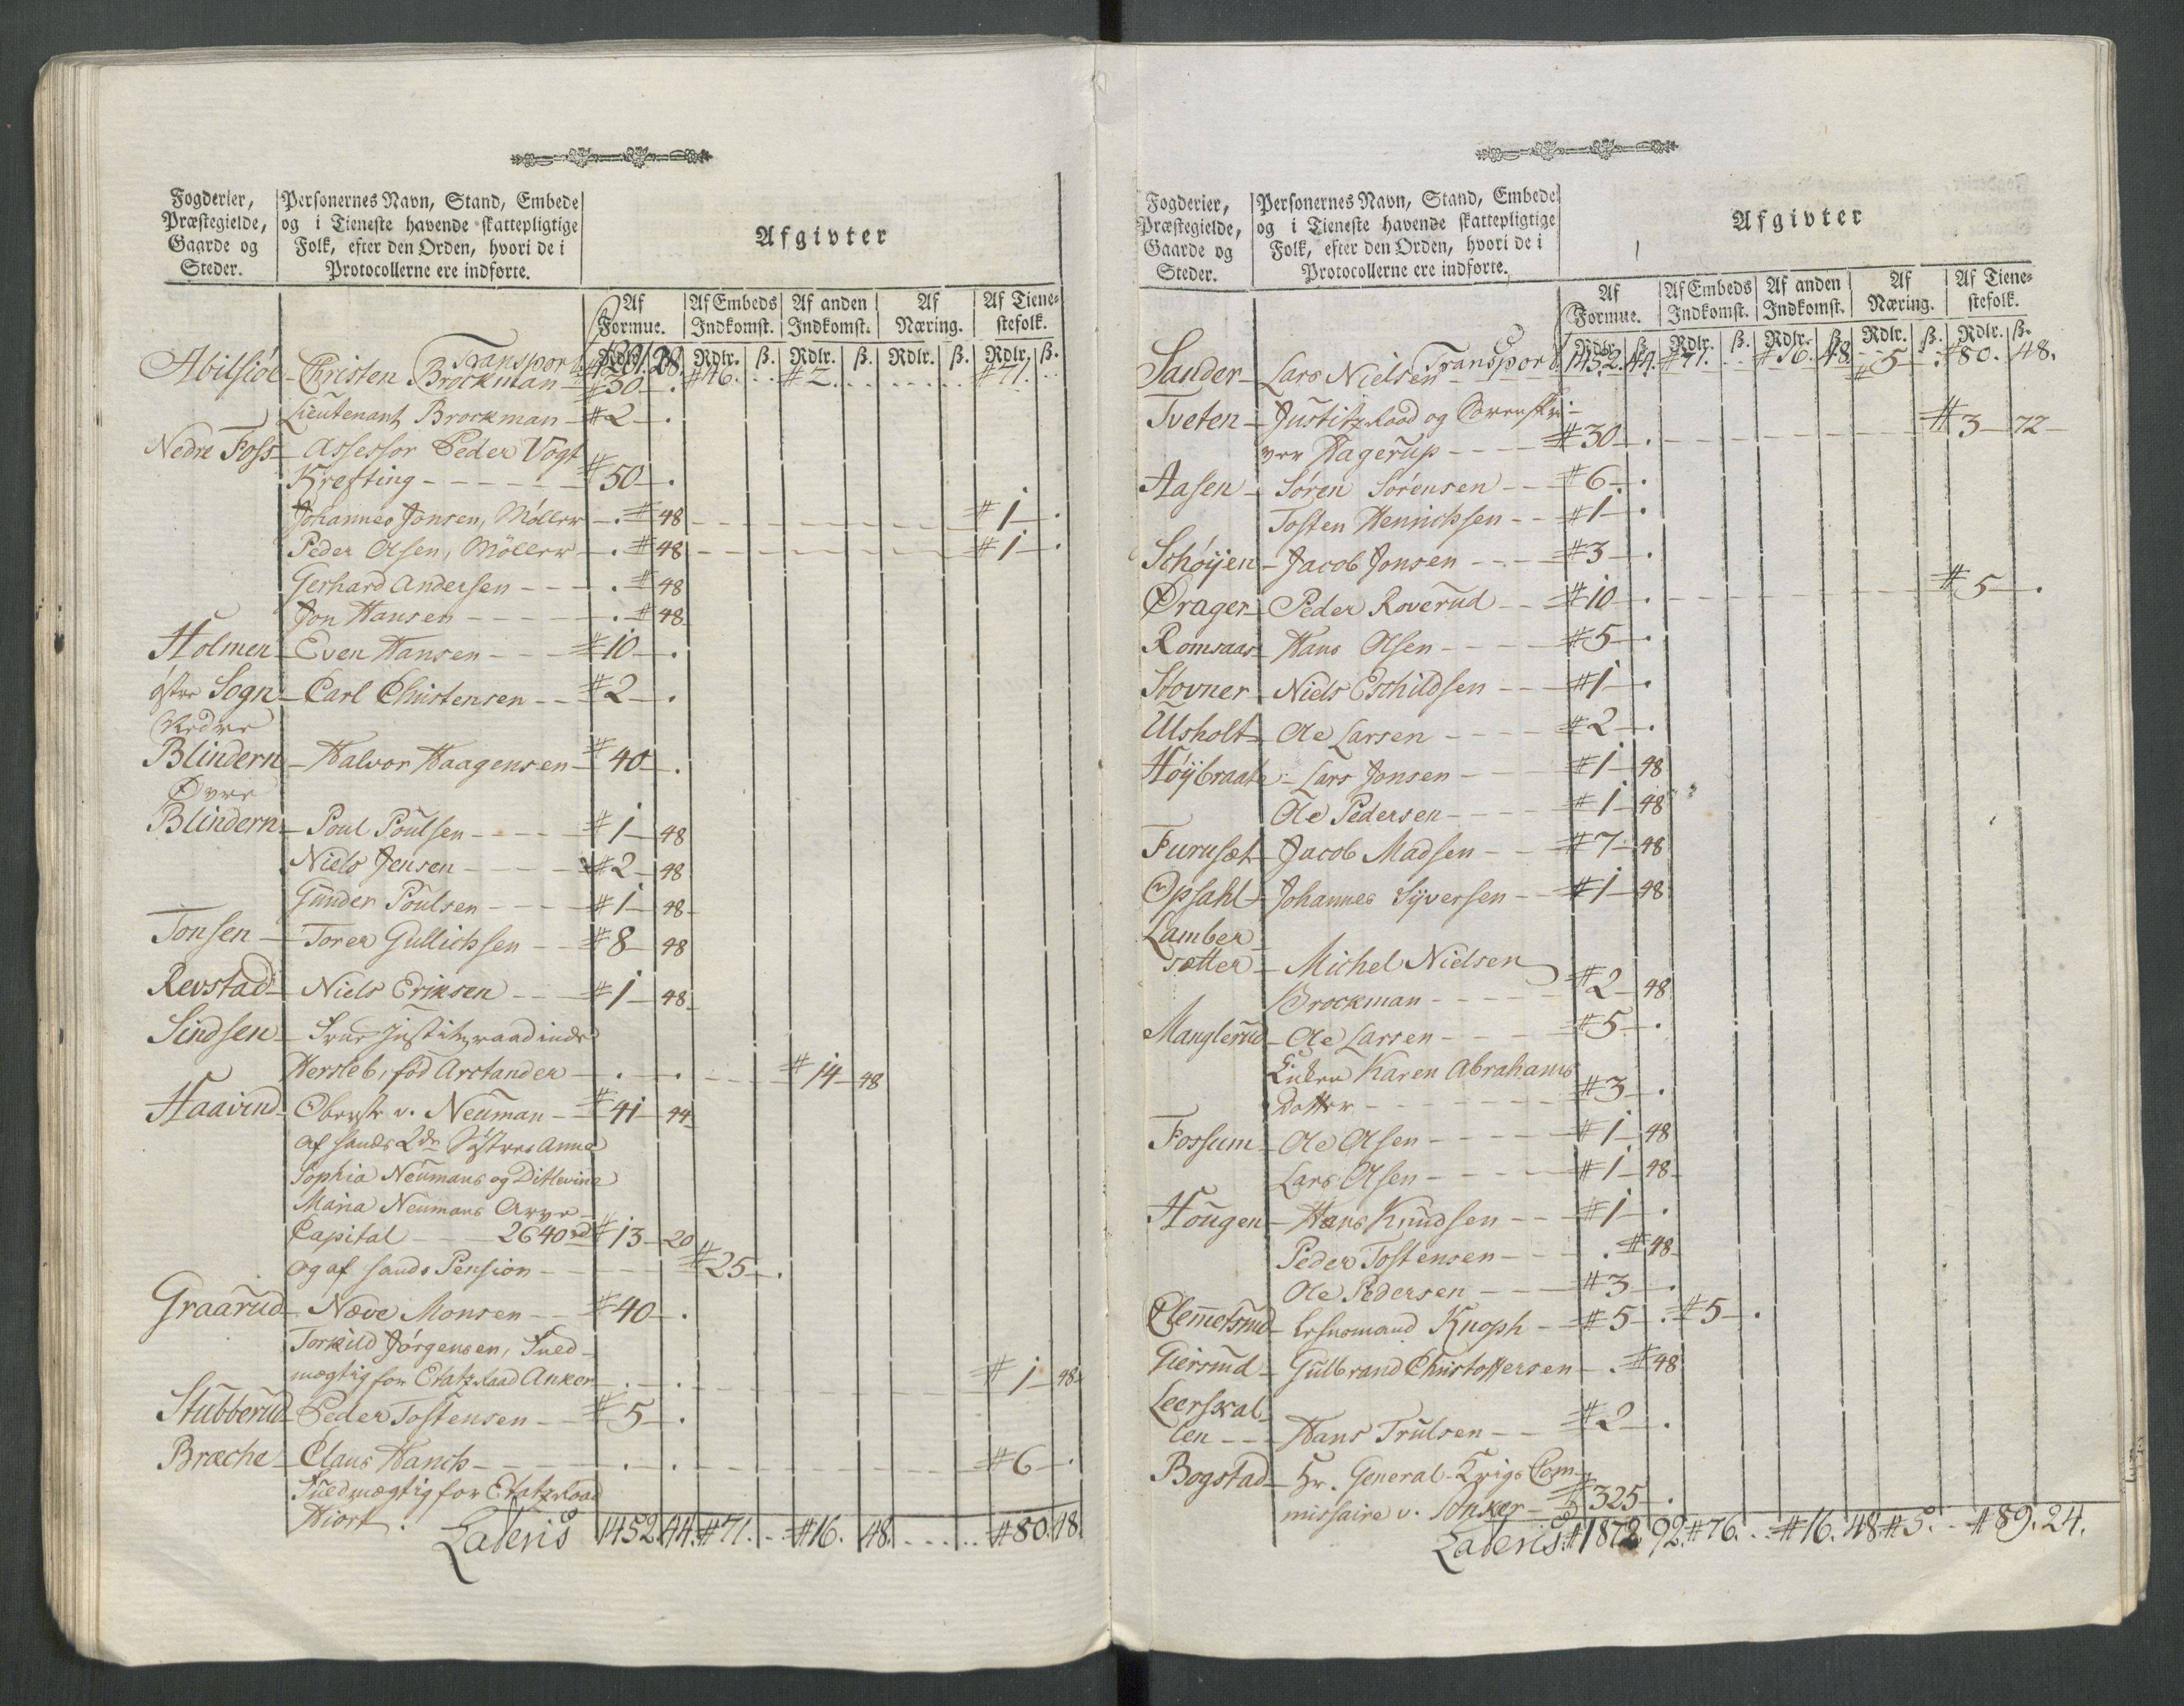 Fogderier,
Præstegielde,
Gaarde og
Steder.
Personernes Navn, Stand, Embede
og i Tieneste havende skattepligtige
Folk, efter den Orden, hvori de i
Protocollerne ere indførte.
Afgivter
Af Formue. Af Embeds Indkomst. Af anden Indkomst. Af Næring. Af Tienestefolk.
Rdlr. ß. Rdlr. ß. Rdlr. ß. Rdlr. ß. Rdlr. ß.
Transport 1201. 28. #46. #2. #71.
Abilsiöe - Christen Brockman - #30 - .
Lieutenant Brockman - #2 - .
Nedre Foss - Assessor Peder Vogt
Krefting - - - #50 - .
Johannes Jonsen, Möller - . #48 - - - #1 - .
Peder Olsen, Möller - . #48 - - - #1 - .
Gerhard Andersen - - - . #48
Jon Hansen - - - . #48
Holmen - Even Hansen - - #10 - .
östre Sogn - Carl Christensen - - #2 - .
Nedre
Blindern - Halvor Haagensen - #40 - .
Øvre
Blindern - Poul Poulsen - - - #1 - 48
Niels Jensen - - - #2 - 48
Gunder Poulsen - - - #1 - 48
Tonsen - Torer Gullichsen - - #8 - 48
Revstad - Niels Eriksen - - #1 - 48
Sindsen - Frue Justitzraadinde
Hersleb, föd Arctander - . - . - - #14 - 48
Haavind - Oberste v. Neuman - #41 - 44
af hands 2de Söstres Anna
Sophia Neumans og Ditlevine
Maria Neumans Arve-
Capital - - 2640 rd #13 - 20
og af hands Pension - - - #25 - .
Graarud - Næve Monsen - - #40 - .
Torkild Jörgensen, Fuld-
mægtig for Etatzraad Anker - . - . - - - #1 - 48
Stubberud - Peder Tostensen - - #5 - .
Bræche - Claus Hanch - - . - . - - - #6 - .
Fuldmægtig for Etatzraad
Hiort.
Lateris 1452. 44. #71. - #16. 48. . . . . #80. 48.
Fogderier,
Præstegielde,
Gaarde og
Steder.
Personernes Navn, Stand, Embede
og i Tieneste havende skattepligtige
Folk, efter den Orden, hvori de i
Protocollerne ere indførte.
Afgivter
Af Formue. Af Embeds Indkomst. Af anden Indkomst. Af Næring. Af Tienestefolk.
Rdlr. ß. Rdlr. ß. Rdlr. ß. Rdlr. ß. Rdlr. ß.
Transport 1452. 44. #71. #16. 48 #80. 48.
Sander - Lars Nielsen - - - #5 - .
Tveten - Justitzraad og Sorenskri-
ver Hagerup - - - #30 - . - - - #3 - 72
Aasen - Sören Sörensen - - #6 - .
Tosten Henrichsen - - #1 - .
Schöyen - Jacob Jonsen - - - #3 - .
Ørager - Peder Roverud - - #10 - . - - - #5 - .
Romsaas - Hans Olsen - - - #5 - .
Stovner - Niels Eschildsen - - #1 - .
Ulsholt - Ole Larsen - - - #2 - .
Höybraate - Lars Jonsen - - - #1 - 48
Ole Pedersen - - - #1 - 48
Furuset - Jacob Madsen - - #7 - 48
Opsahl - Johannes Syversen - - #1 - 48
Lamber-
sætter - Michel Nielsen
Brockman - - - #2 - 48
Manglerud - Ole Larsen - - - #5 - .
Enken Karen Abrahams
Datter - - - #3 - .
Fossum - Ole Olsen - - - #1 - 48
Lars Olsen - - - #1 - 48
Hougen - Hans Knudsen - - #1 - .
Peder Tostensen - - . #48
Ole Pedersen - - - #3 - .
Clemetsrud - Lehnsmand Knoph - #5 - . #5 - .
Giersrud - Gulbrand Christoffersen - . #48
Leerskal-
len - - Hans Trulsen - - #2 - .
Bogstad - Hr. General-Krigs Com-
missaire v. Anker - #325 - .
Lateris. #1872. 92. #76. - #16. 48 #5. - #89. 24.